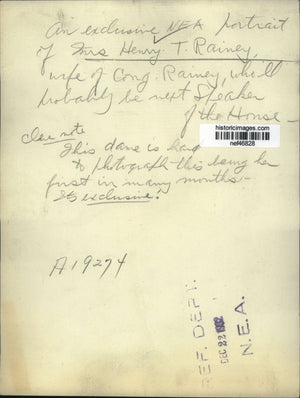 An exclusive NEA portrait
of Mrs Henry T. Rainey,
wife of Cong. Rainey, who'll
probably be next Speaker
of the House —
historicimages.com
nef46828
This dame is hard
to photograph this being her
first in many months —
It's exclusive!
A19274
REF. DEPT.
DEC 22 1932
N.E.A.